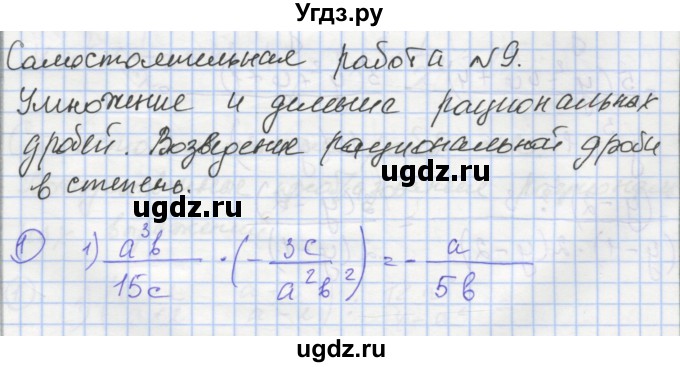 Угдз.ру
Самостоятельная работа №9.
Умножение и деление рациональных
дробей. Возведение рациональной дроби
в степень.
©ugdz.ru ©ugdz.ru
1 1) a³b/15c · (-3c/a²b²) = -a/5b
©ugdz.ru ©ugdz.ru
ugdz.ru